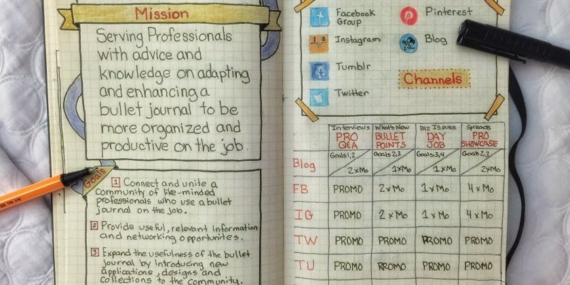 Mission
Serving Professionals
with advice and
knowledge on adapting
and enhancing a
bullet journal to be
more organized and
productive on the job.
Goals
1 Connect and unite a
community of like-minded
professionals who use a bullet
journal on the job.
2 Provide useful, relevant information
and networking opportunites.
3 Expand the usefulness of the bullet
journal by introducing new
applications, designs and
collections to the community.
Facebook
Group
Pinterest
Instagram
Blog
Tumblr
Channels
Twitter
Interviews What's New Spreads
PRO BULLET DAY PRO
Q&A POINTS JOB SHOWCASE
Blog Goals 1,2 Goals 2,3 Goals 3,4 Goals 2,3
2xMo 1xMo 1xMo 2xMo
FB PROMO 2xMo 1xMo 4xMo
IG PROMO 2xMo 1xMo 4xMo
TW PROMO PROMO PROMO PROMO
TU PROMO PROMO PROMO PROMO